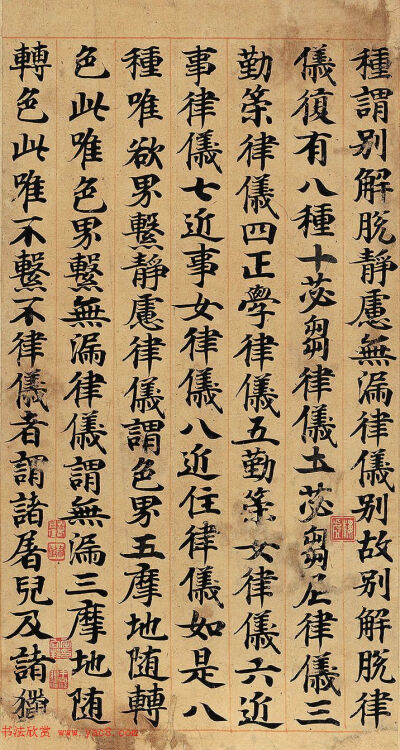 種謂別解脫靜慮無漏律儀別故別解脫律
儀復有八種十苾芻律儀土苾芻尼律儀三
勤策律儀四正學律儀五勤策女律儀六近
事律儀七近事女律儀八近住律儀如是八
種唯欲界繫靜慮律儀謂色界五摩地随轉
色此唯色界繫無漏律儀謂無漏三摩地随
轉色此唯不繫不律儀者謂諸屠兒及諸獵
书法欣赏 www.yac8.com